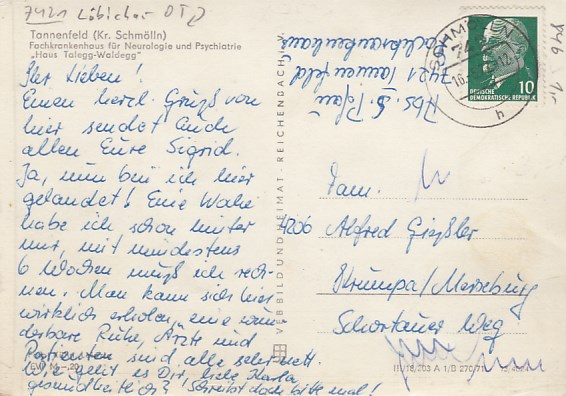 7421 Löbichau OT
Tannenfeld (Kr. Schmölln)
Fachkrankenhaus für Neurologie und Psychiatrie
„Haus Talegg-Waldegg“
Ihr Lieben!
Einen herzl. Gruß von
hier sendet Euch
allen Eure Sigrid.
Ja, nun bin ich hier
gelandet! Eine Woche
habe ich schon hinter
mir, mit mindestens
6 Wochen muß ich rech-
nen. Man kann sich hier
wirklich erholen, eine wun-
derbare Ruhe, Ärzte und
Patienten sind alle sehr nett.
Wie geht es Dir, liebe Karla
gesundheitlich? Schreibt doch bitte mal!
VEB BILD UND HEIMAT · REICHENBACH I. V.
Abs. S.
Fachkrankenhaus
7421 Tannenfeld
SCHMÖLLN
h
10
DEUTSCHE
DEMOKRATISCHE REPUBLIK
Fam.
4206 Alfred Gießler
Krumpa/Merseburg
Schortauer Weg
III/18/203 A 1/B 270/71